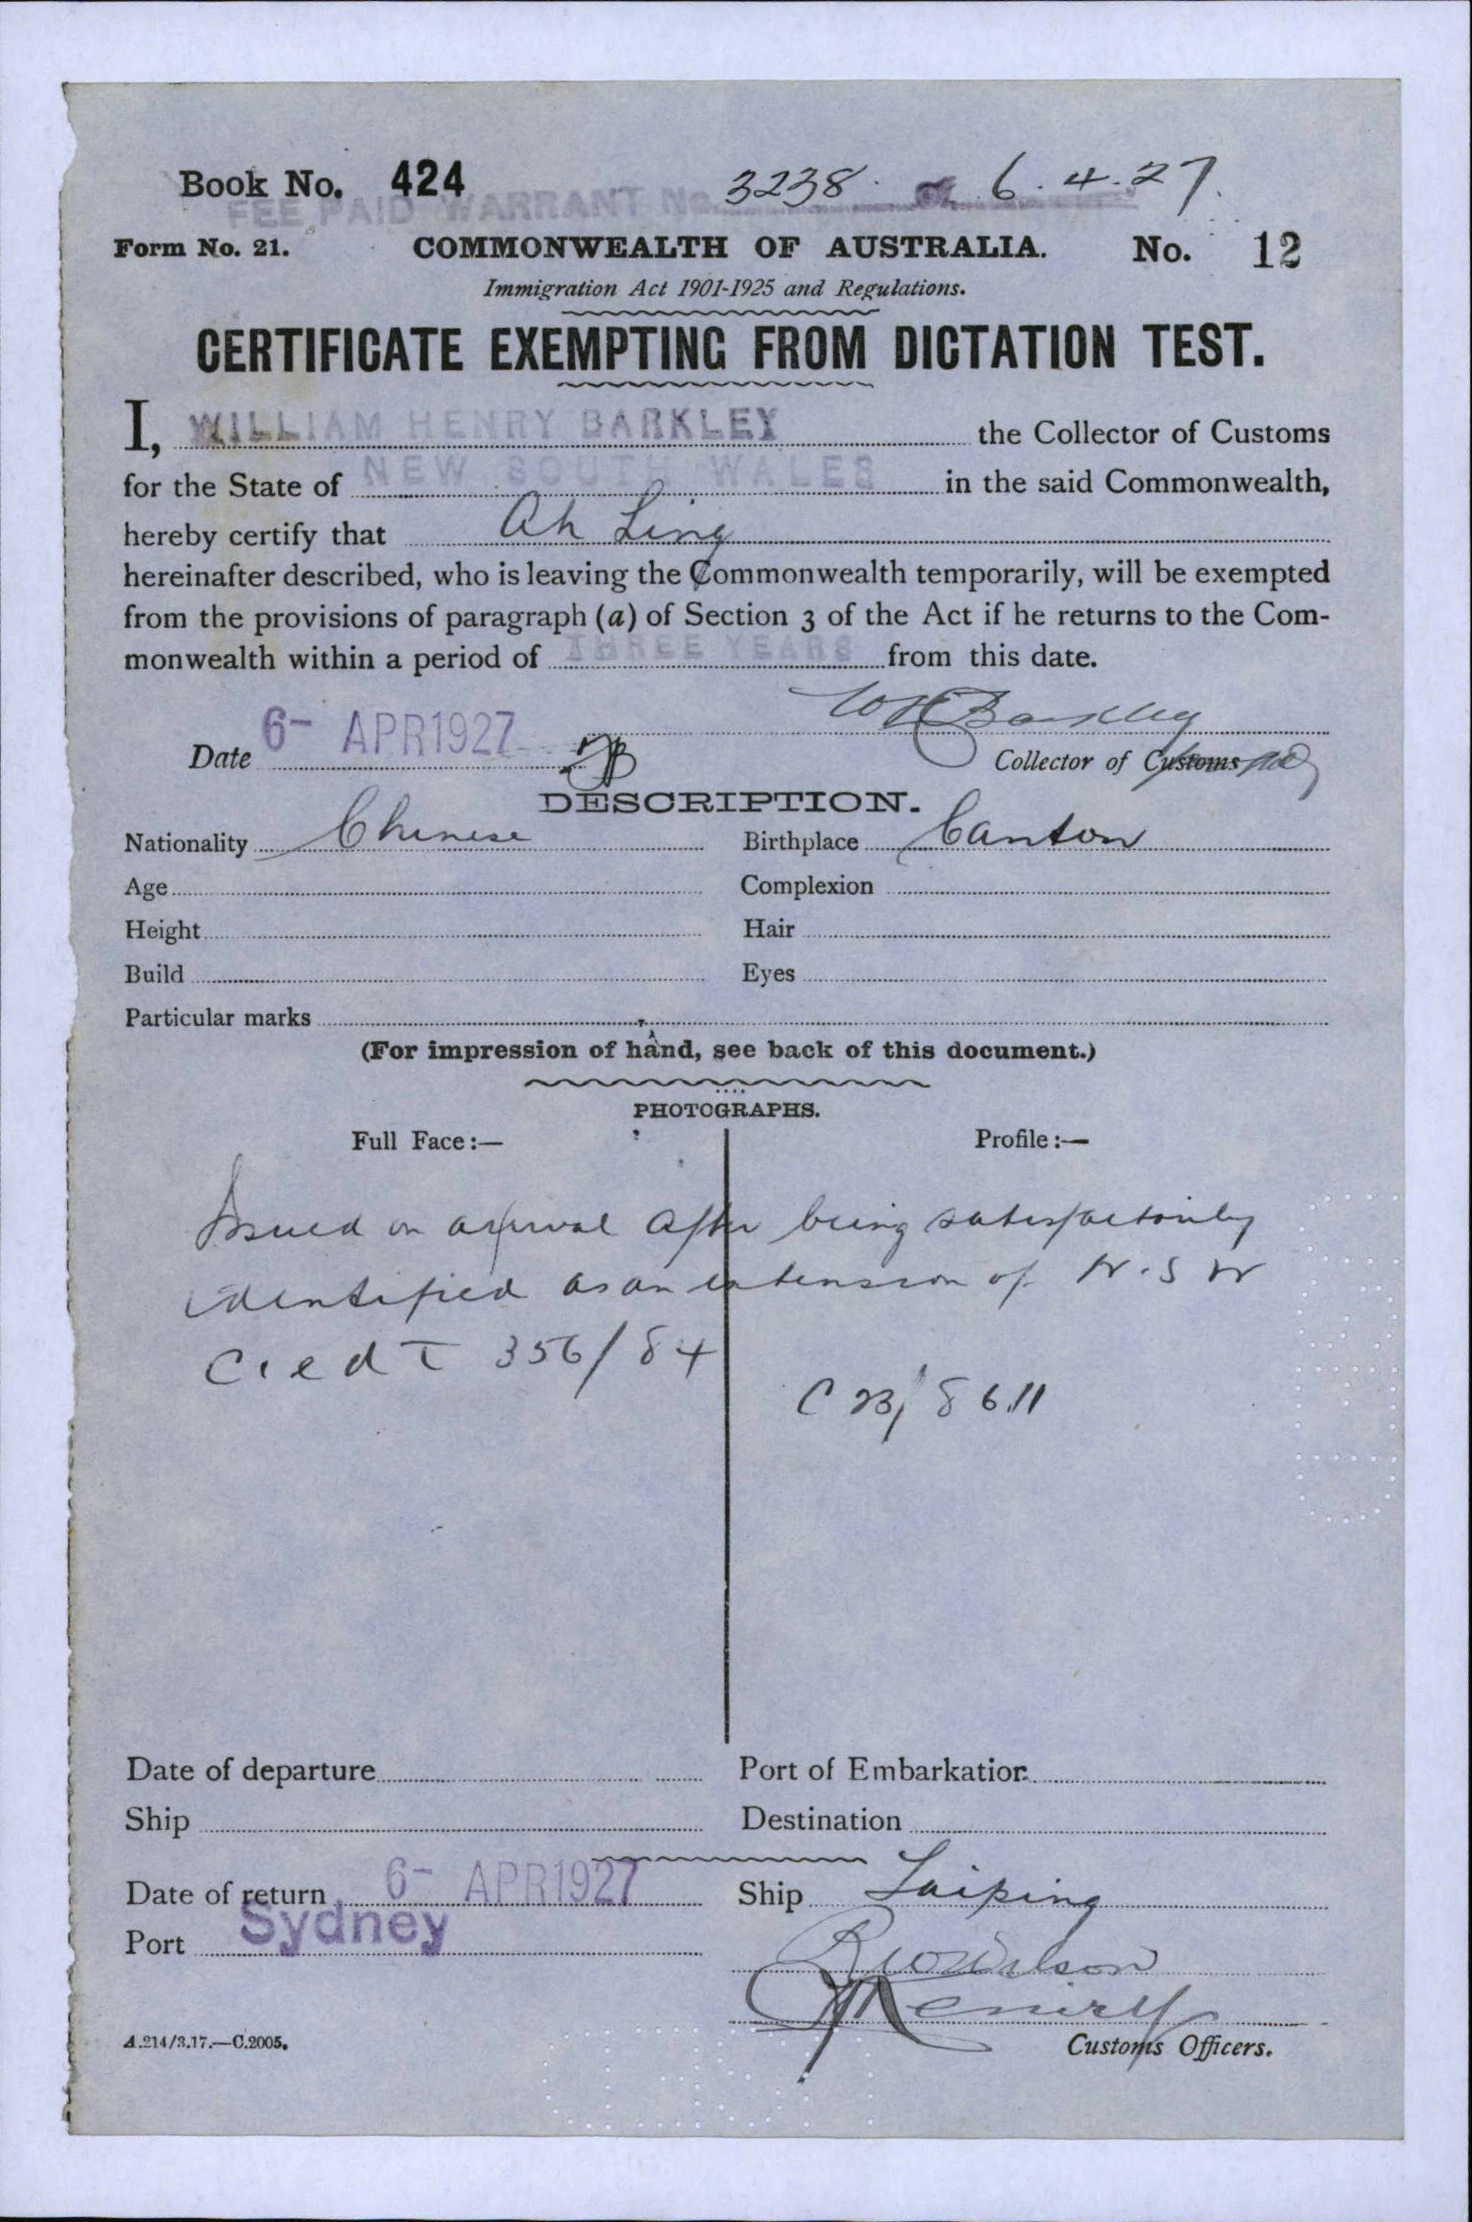 Book No. 424
FEE PAID WARRANT No. 3238 of 6.4.27.
Form No. 21. COMMONWEALTH OF AUSTRALIA. No. 12
Immigration Act 1901-1925 and Regulations.
CERTIFICATE EXEMPTING FROM DICTATION TEST.
I, WILLIAM HENRY BARKLEY the Collector of Customs
for the State of NEW SOUTH WALES in the said Commonwealth,
hereby certify that Ah Ling
hereinafter described, who is leaving the Commonwealth temporarily, will be exempted
from the provisions of paragraph (a) of Section 3 of the Act if he returns to the Com-
monwealth within a period of THREE YEARS from this date.
W H Barkley
Date 6- APR 1927 Collector of Customs
DESCRIPTION.
Nationality Chinese Birthplace Canton
Age Complexion
Height Hair
Build Eyes
Particular marks
(For impression of hand, see back of this document.)
PHOTOGRAPHS.
Full Face:— Profile:—
Issued on arrival after being satisfactorily
identified as an extension of N.S W
C.edT 356/84
C 23/8611
Date of departure Port of Embarkation
Ship Destination
Date of return 6- APR 1927 Ship Taiping
Port Sydney
Wilson
A.214/3.17.—C.2005. Customs Officers.